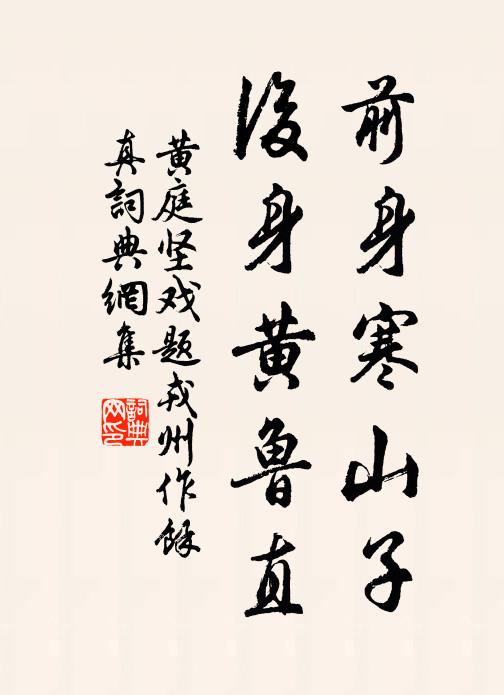 前身寒山子
後身黄魯直
黄庭坚戏题戎州作馀
真詞典網集
詞典
网印